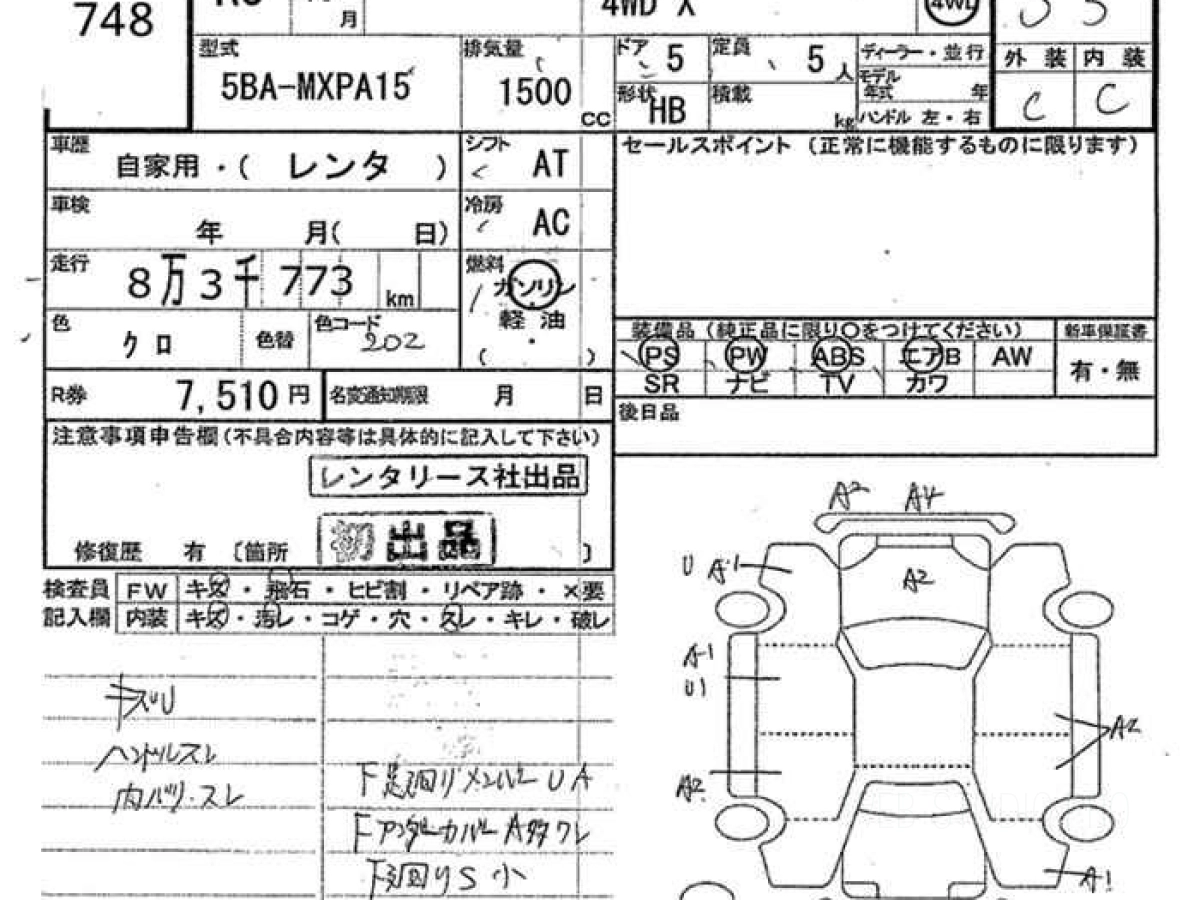 748
月
4WD X
4WD
型式
5BA-MXPA15
排気量
1500 CC
ドア 5
定員 5 人
形状 HB
積載 kg
ディーラー・並行
モデル年式 年
ハンドル 左・右
外装 内装
C C
車歴
自家用・( レンタ )
シフト AT
セールスポイント (正常に機能するものに限ります)
車検
年 月( 日)
冷房 AC
走行 8万3千773 km
燃料
ガソリン
軽油
( ・ )
色 クロ
色替
色コード 202
装備品 (純正品に限り○をつけてください)
新車保証書
PS PW ABS エアB AW
SR ナビ TV カワ
有・無
R券 7,510円
名変通知期限 月 日
後日品
注意事項申告欄(不具合内容等は具体的に記入して下さい)
レンタリース社出品
初出品
修復歴 有 〔箇所 〕
検査員 FW キズ・飛石・ヒビ割・リペア跡・×要
記入欄 内装 キズ・汚レ・コゲ・穴・スレ・キレ・破レ
キズU
ハンドルスレ
内バリ・スレ
下廻りメンバーUA
Fアンダーカバー A多ワレ
下廻りS小
A2 A4
U A1
A2
A1
U1
A2
A2
A1